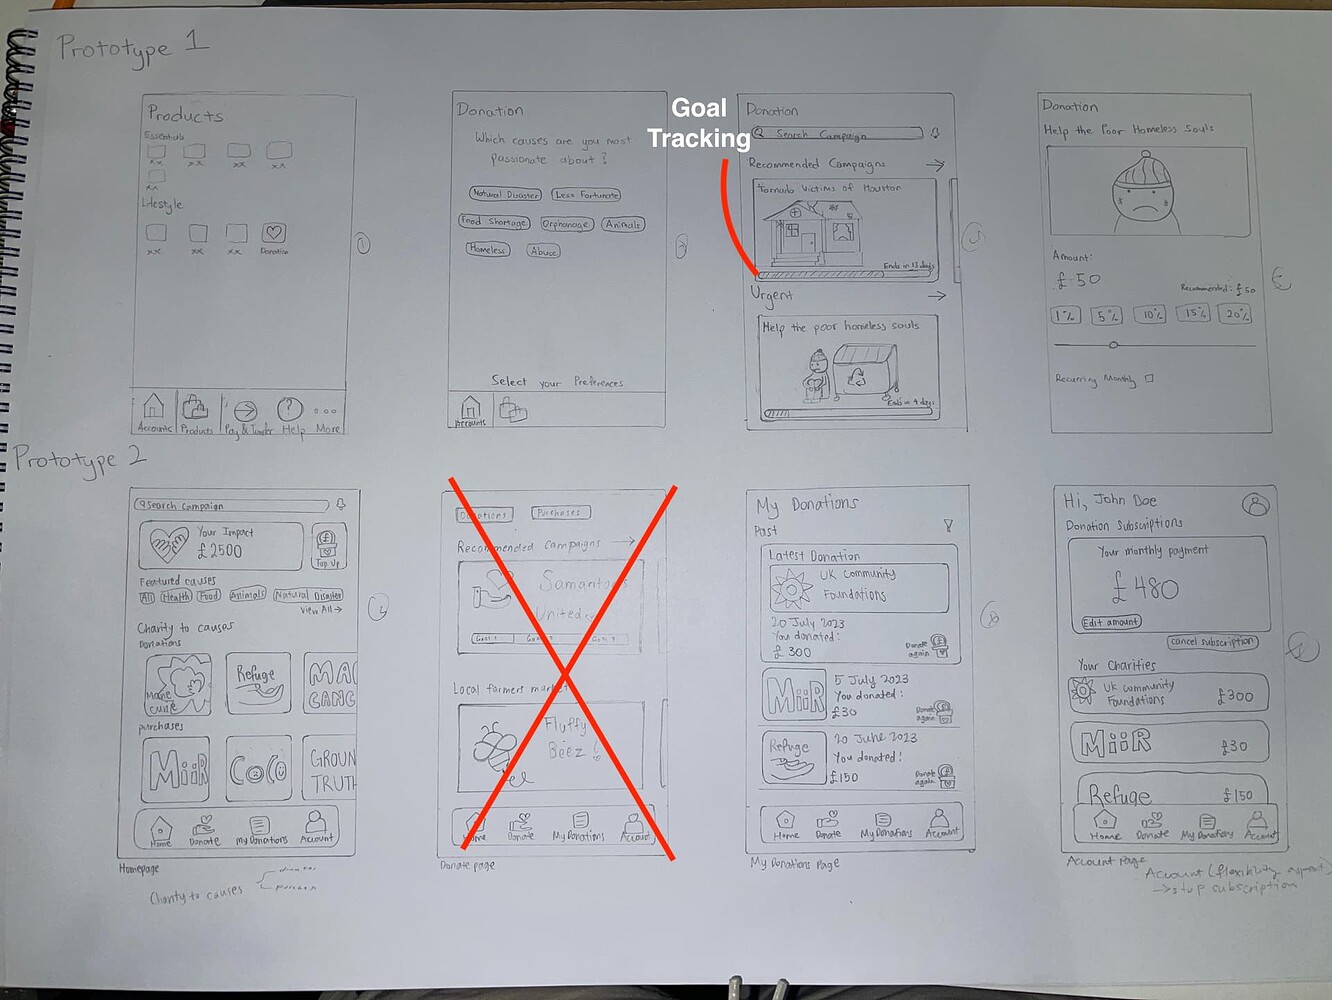 Prototype 1
Products
Essentials
xx xx xx xx
xx
Lifestyle
xx xx xx Donation
Accounts Products Pay & Transfer Help More
Donation
Which causes are you most
passionate about?
Natural Disaster Less Fortunate
Food Shortage Orphanage Animals
Homeless Abuse
Select your Preferences
Accounts
Goal
Tracking
Donation
Search Campaign
Recommended Campaigns
Tornado Victims of Houston
Ends in 13 days
Urgent
Help the poor homeless souls
Ends in 4 days
Donation
Help the Poor Homeless Souls
Amount:
£ 50
Recommended: £50
1% 5% 10% 15% 20%
Recurring Monthly
Prototype 2
Search Campaign
Your Impact
£2500
Top Up
Featured causes
All Health Food Animals Natural Disaster
View All →
Charity to causes
Donations
Marie
curie
Refuge
MAC
CANC
purchases
MiiR
CoCo
GROUN
TRUTH
Home Donate My Donations Account
Homepage
Charity to causes
Donations Purchases
Recommended Campaigns →
United
Local farmers market
Fluffy
Beez!
Home Donate My Donations Account
Donate page
My Donations
Past
Latest Donation
UK Community
Foundations
20 July 2023
You donated:
£ 300
Donate
again
MiiR
5 July 2023
You donated:
£30
Donate
again
Refuge
20 June 2023
You donated!
£150
Donate
again
Home Donate My Donations Account
My Donations Page
Hi, John Doe
Donation Subscriptions
Your monthly payment
£480
Edit amount
cancel subscription
Your Charities
UK Community
Foundations £300
MiiR £30
Refuge £150
Home Donate My Donations Account
Account Page
Account (flexibility
→ stop subscription